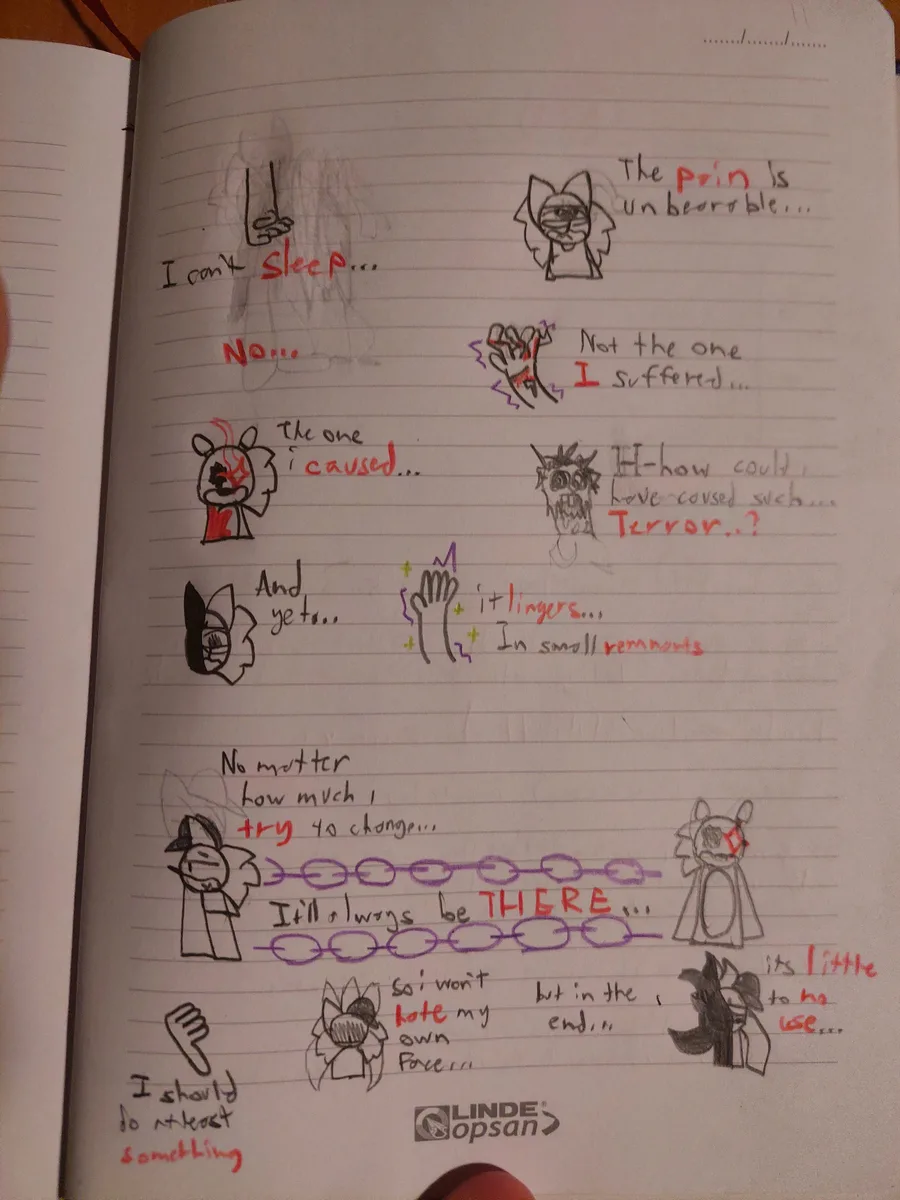 I can't Sleep...
The pain is
unbearable...
No...
Not the one
I suffered...
The one
i caused...
H-how could i
have caused such...
Terror..?
And
yet...
it lingers...
In small remnants
No matter
how much i
try to change...
It'll always be THERE...
I should
do atleast
something
so i won't
hate my
own
Face...
but in the
end...
its little
to no
use...
LINDE
opsan